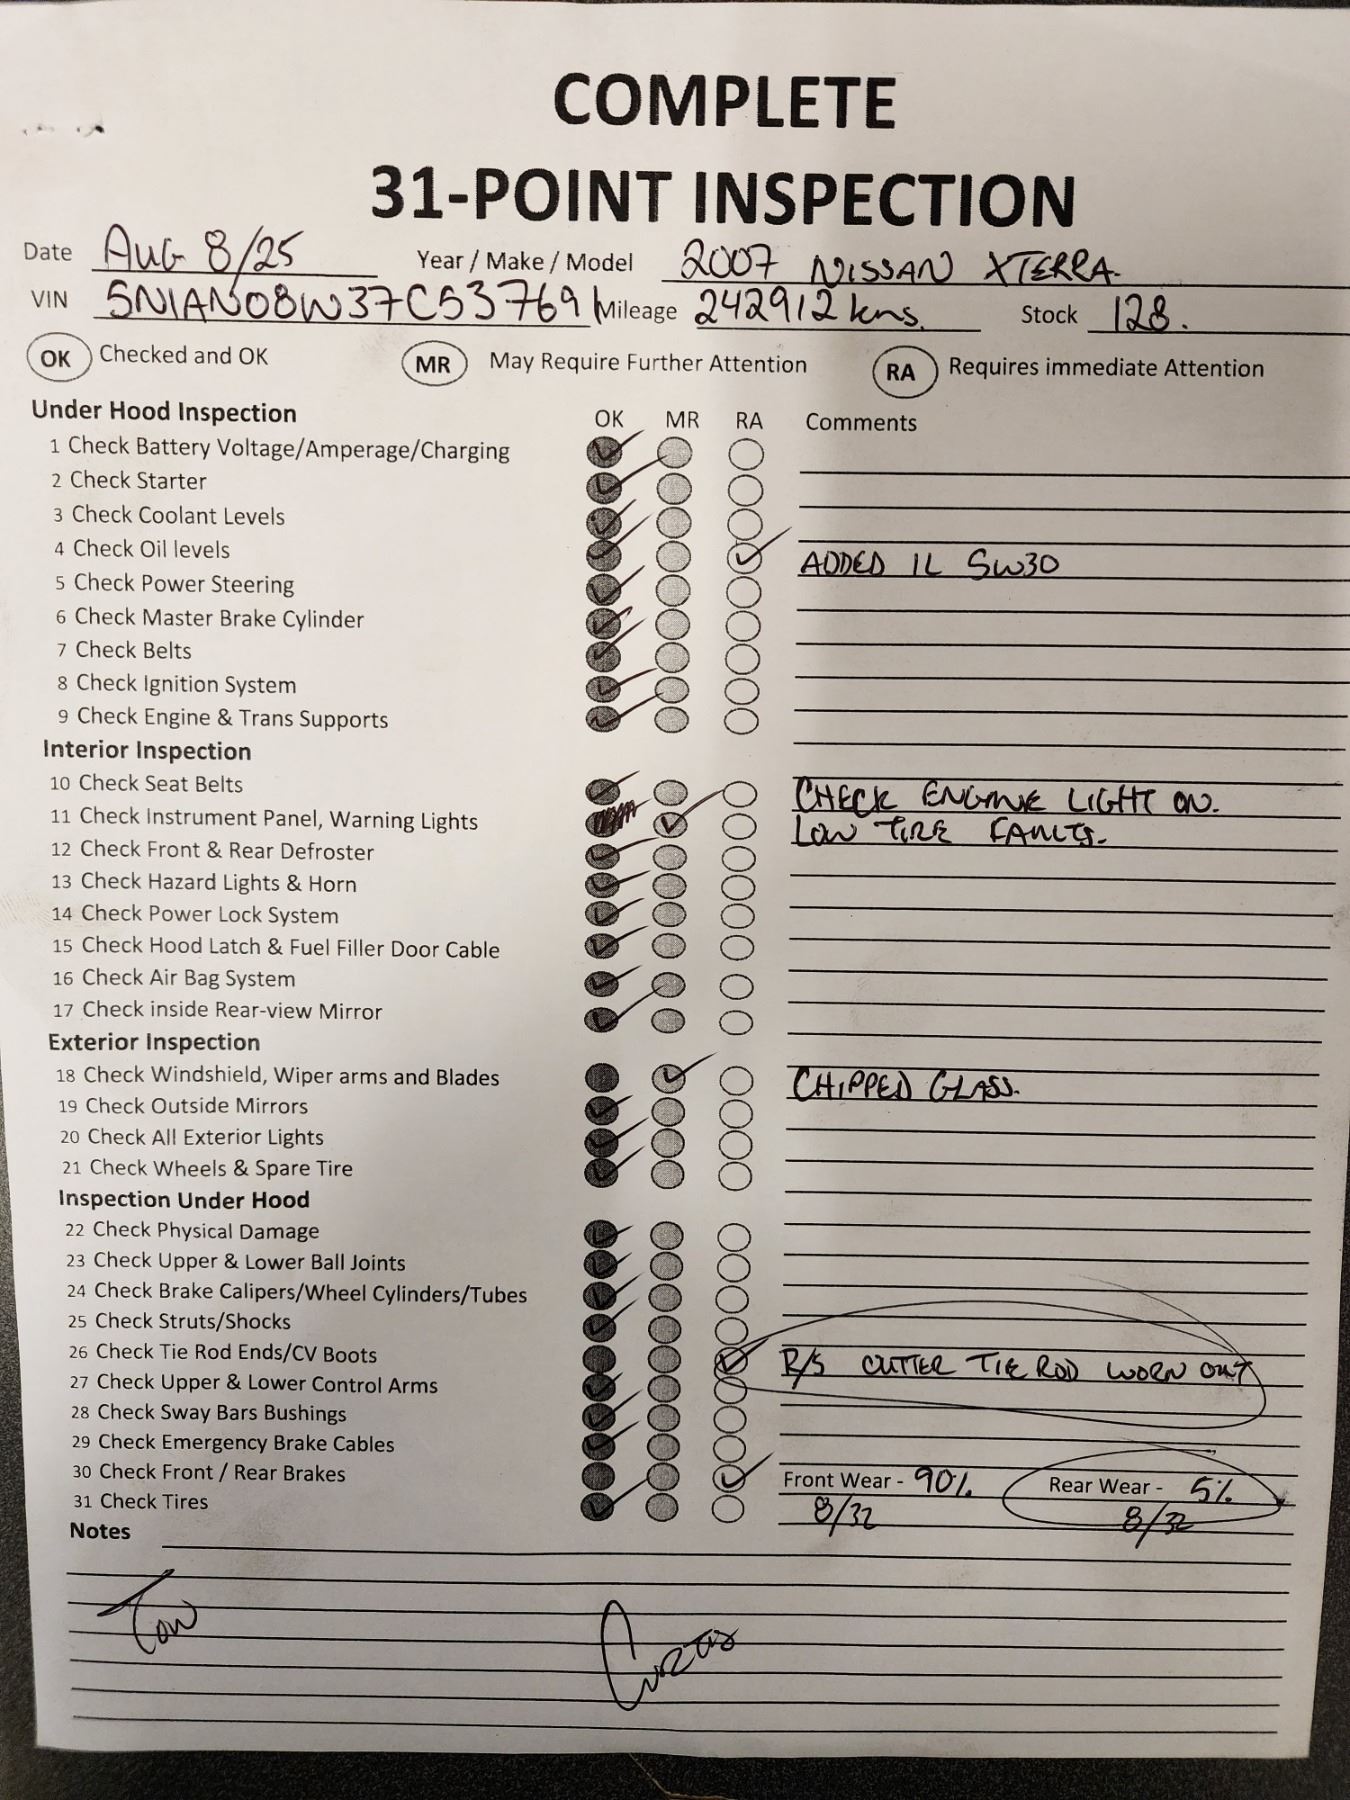 COMPLETE
31-POINT INSPECTION
Date AUG 8/25 Year / Make / Model 2007 NISSAN XTERRA
VIN 5N1AN08W37C537691 Mileage 242912 kms. Stock 128.
OK Checked and OK MR May Require Further Attention RA Requires immediate Attention
Under Hood Inspection OK MR RA Comments
1 Check Battery Voltage/Amperage/Charging
2 Check Starter
3 Check Coolant Levels
4 Check Oil levels ADDED 1L 5W30
5 Check Power Steering
6 Check Master Brake Cylinder
7 Check Belts
8 Check Ignition System
9 Check Engine & Trans Supports
Interior Inspection
10 Check Seat Belts CHECK ENGINE LIGHT ON.
11 Check Instrument Panel, Warning Lights LOW TIRE FAULTS.
12 Check Front & Rear Defroster
13 Check Hazard Lights & Horn
14 Check Power Lock System
15 Check Hood Latch & Fuel Filler Door Cable
16 Check Air Bag System
17 Check inside Rear-view Mirror
Exterior Inspection
18 Check Windshield, Wiper arms and Blades CHIPPED GLASS.
19 Check Outside Mirrors
20 Check All Exterior Lights
21 Check Wheels & Spare Tire
Inspection Under Hood
22 Check Physical Damage
23 Check Upper & Lower Ball Joints
24 Check Brake Calipers/Wheel Cylinders/Tubes
25 Check Struts/Shocks
26 Check Tie Rod Ends/CV Boots R/S OUTTER TIE ROD WORN OUT
27 Check Upper & Lower Control Arms
28 Check Sway Bars Bushings
29 Check Emergency Brake Cables
30 Check Front / Rear Brakes Front Wear - 90% Rear Wear - 5%
31 Check Tires 8/32 8/32
Notes